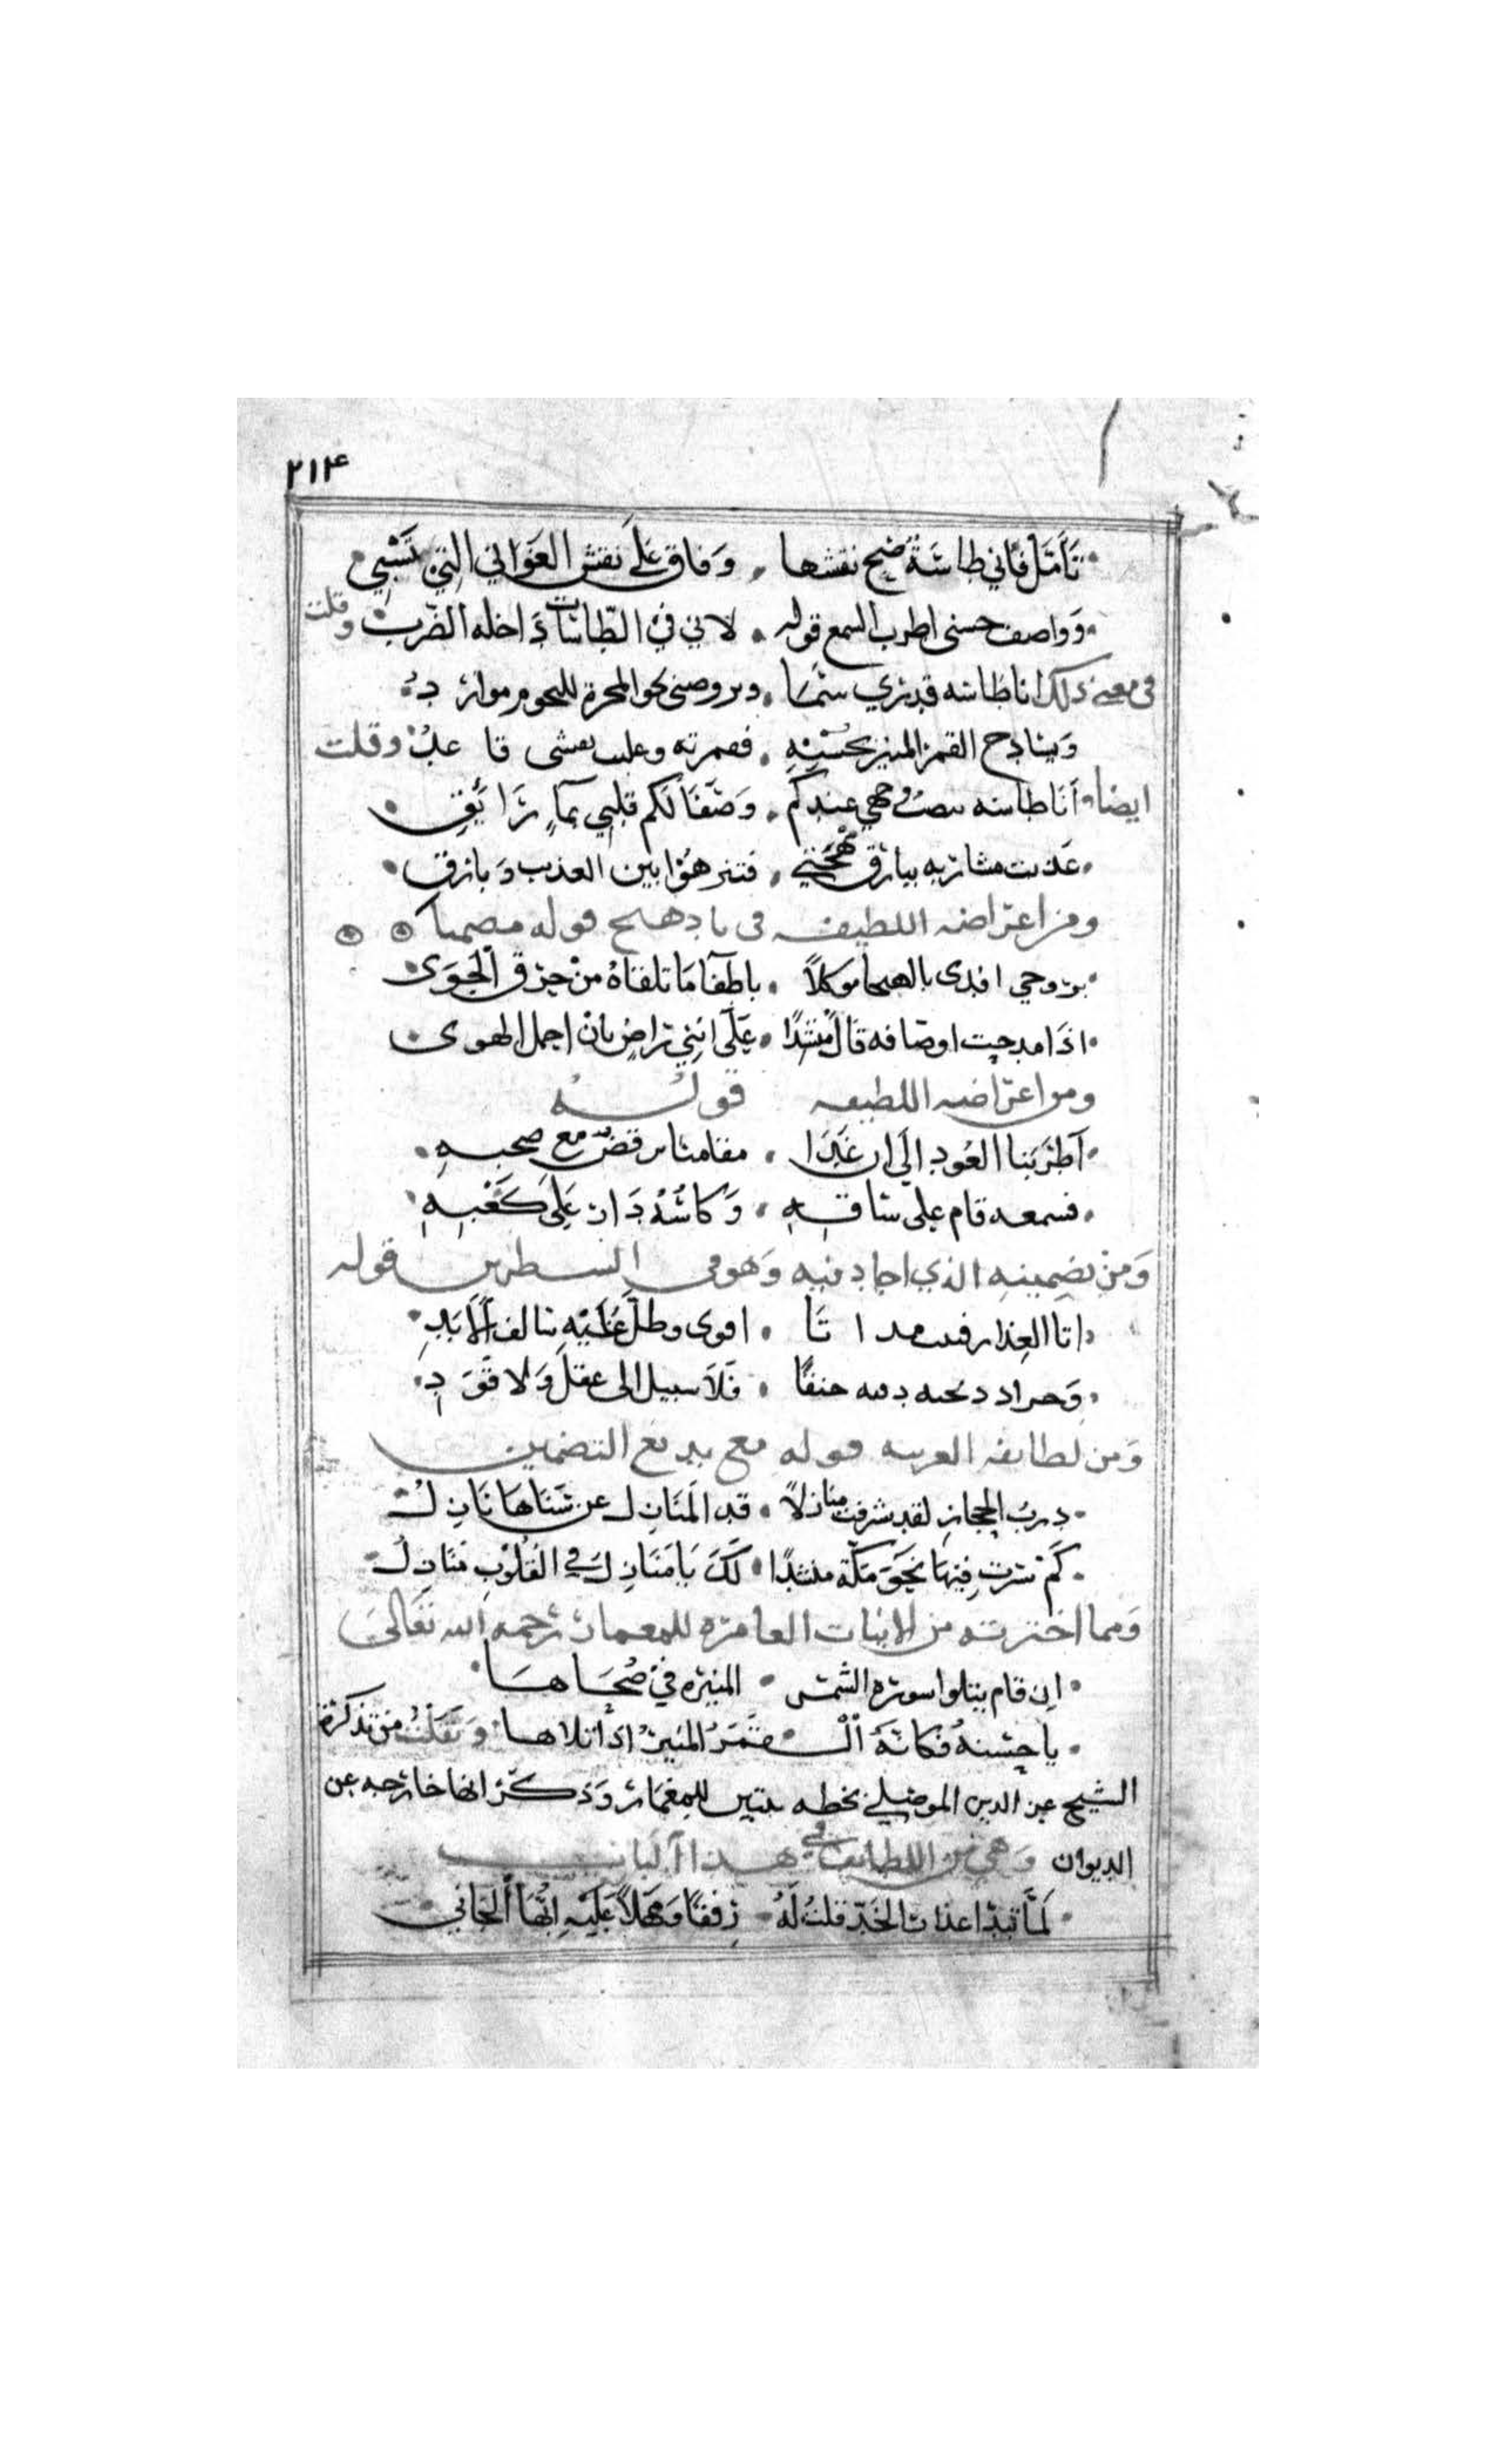 ٢١٤
تَأمَّل فَاني طاسَةٌ ضح نقشها . وَفاق عَلَى نقش الغَوَاني التي تَسْبي
وَوَاصف حسنى اطرب السمع قوله . لاني في الطاسات دَاخله الضَّرب وقلت
في معنى ذلك انا طاسه قد نرى سَمَا . وبروضى نحو المجرة للنجوم موارد
وَينادح القمر المنير بحُسْنِهِ . فعمرته وعليه قا عدٌ وقلت
ايضا أنا طاسه عندكم . وَصَفَا لَكم قلبي بمآءٍ رَائقٍ
عَذبت مشاربه ببارق مهجتي . فتنزهوُا بين العذب وَبارق
ومن اعتراضه اللطيف في بادهنج قوله مضمنا
بروحي افدى بادهنجا موكلاً . باطفا مَا تلقاهُ مِنْ حرق الجَوَى
اذَا مدحت اوصَافه قال منشدًا . عَلَى انني راضٍ بان احمل الهوى
ومن اعتراضه اللطيف قولهُ
اَطْرَبَنا العُود اِلَى ان غَدَا . مقامنا يرقص مع صحبهِ
فسمعه قام على ساقهِ . وَكاسُهُ دَار عَلَى كَعْبِهِ
وَمِن تضمينه الذي اجاد فيه وَهو في السطرين قوله
دار العذار . اقوى وطال عَلَيْهِ سالف الاَبَدِ
. فَلاَ سبيل الى عقل وَلا قَوَدِ
وَمن لطايفه الغريبه قوله مع بديع التضمين
دربُ الحجاز لقد شرفت منازلاً . قد المَنَازل عن سَنَاها نَازل
كَم سرت فيها نحوَ مكّة منشدًا . لَكَ يَا مَنَازل في القُلُوبِ مَنَازل
وَمما اخترته من الابيات العامره للمعمار رَحمه الله تعَالى
ان قام يتلوا سوره الشمس . المنيره في ضُحَاهَا
يا حسْنهُ فكانهُ الْـقمَرُ المنيرُ اذا تلاها وَنَقَلْتُ من تذكرة
الشيخ عز الدين الموصلي بخطه بيتين للمعمَار وَذكر انها خارجه عن
الديوان وَهي من اللطايف في هذا البَاب
لَمَّا تبدّا عذار الخَدّ قلتُ لَهُ . رِفقًا وَمَهْلاً عَلَيْهِ اِنّهَا الجَاني